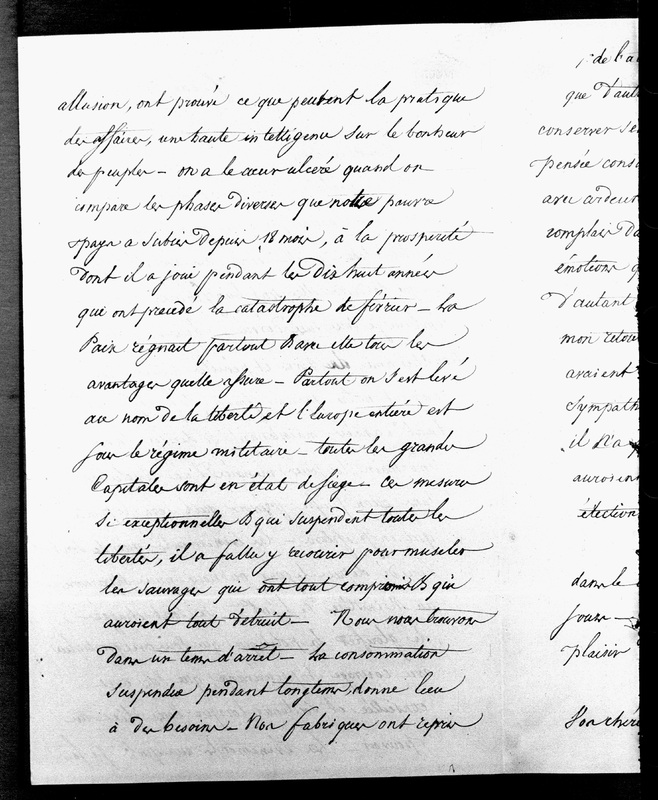 allusion, ont prouvé ce que peuvent la pratique
des affaires, une haute intelligence sur le bonheur
des peuples - on a le cœur ulceré quand on
compare les phases diverses que notre pauvre
pays a subies depuis 18 mois, à la prosperité
dont il a joui pendant les dix huit années
qui ont precedé la catastrophe de février - La
Paix régnait partout & avec elle tous les
avantages quelle assure - Partout on s'est levé
au nom de la liberté, et l'Europe entière est
sous le régime militaire - toutes les grandes
Capitales sont en état de siège - ces mesures
si exceptionnelles & qui suspendent toutes les
libertés, il a fallu y recourir pour museler
les sauvages qui ont tout compromis & qui
auroient tout détruit - Nous nous trouvons
dans un tems d'arrêt - La consommation
suspendue pendant longtems, donne lieu
à des besoins - Nos fabriques ont repris
de l'a
que d'aut
conserver se
pensée cons
avec ardeur
complais da
émotions q
D'autant
mon retou
avaient
sympath
il n'a
auroient
élection
dans le
jours -
plaisir
Ton chéri